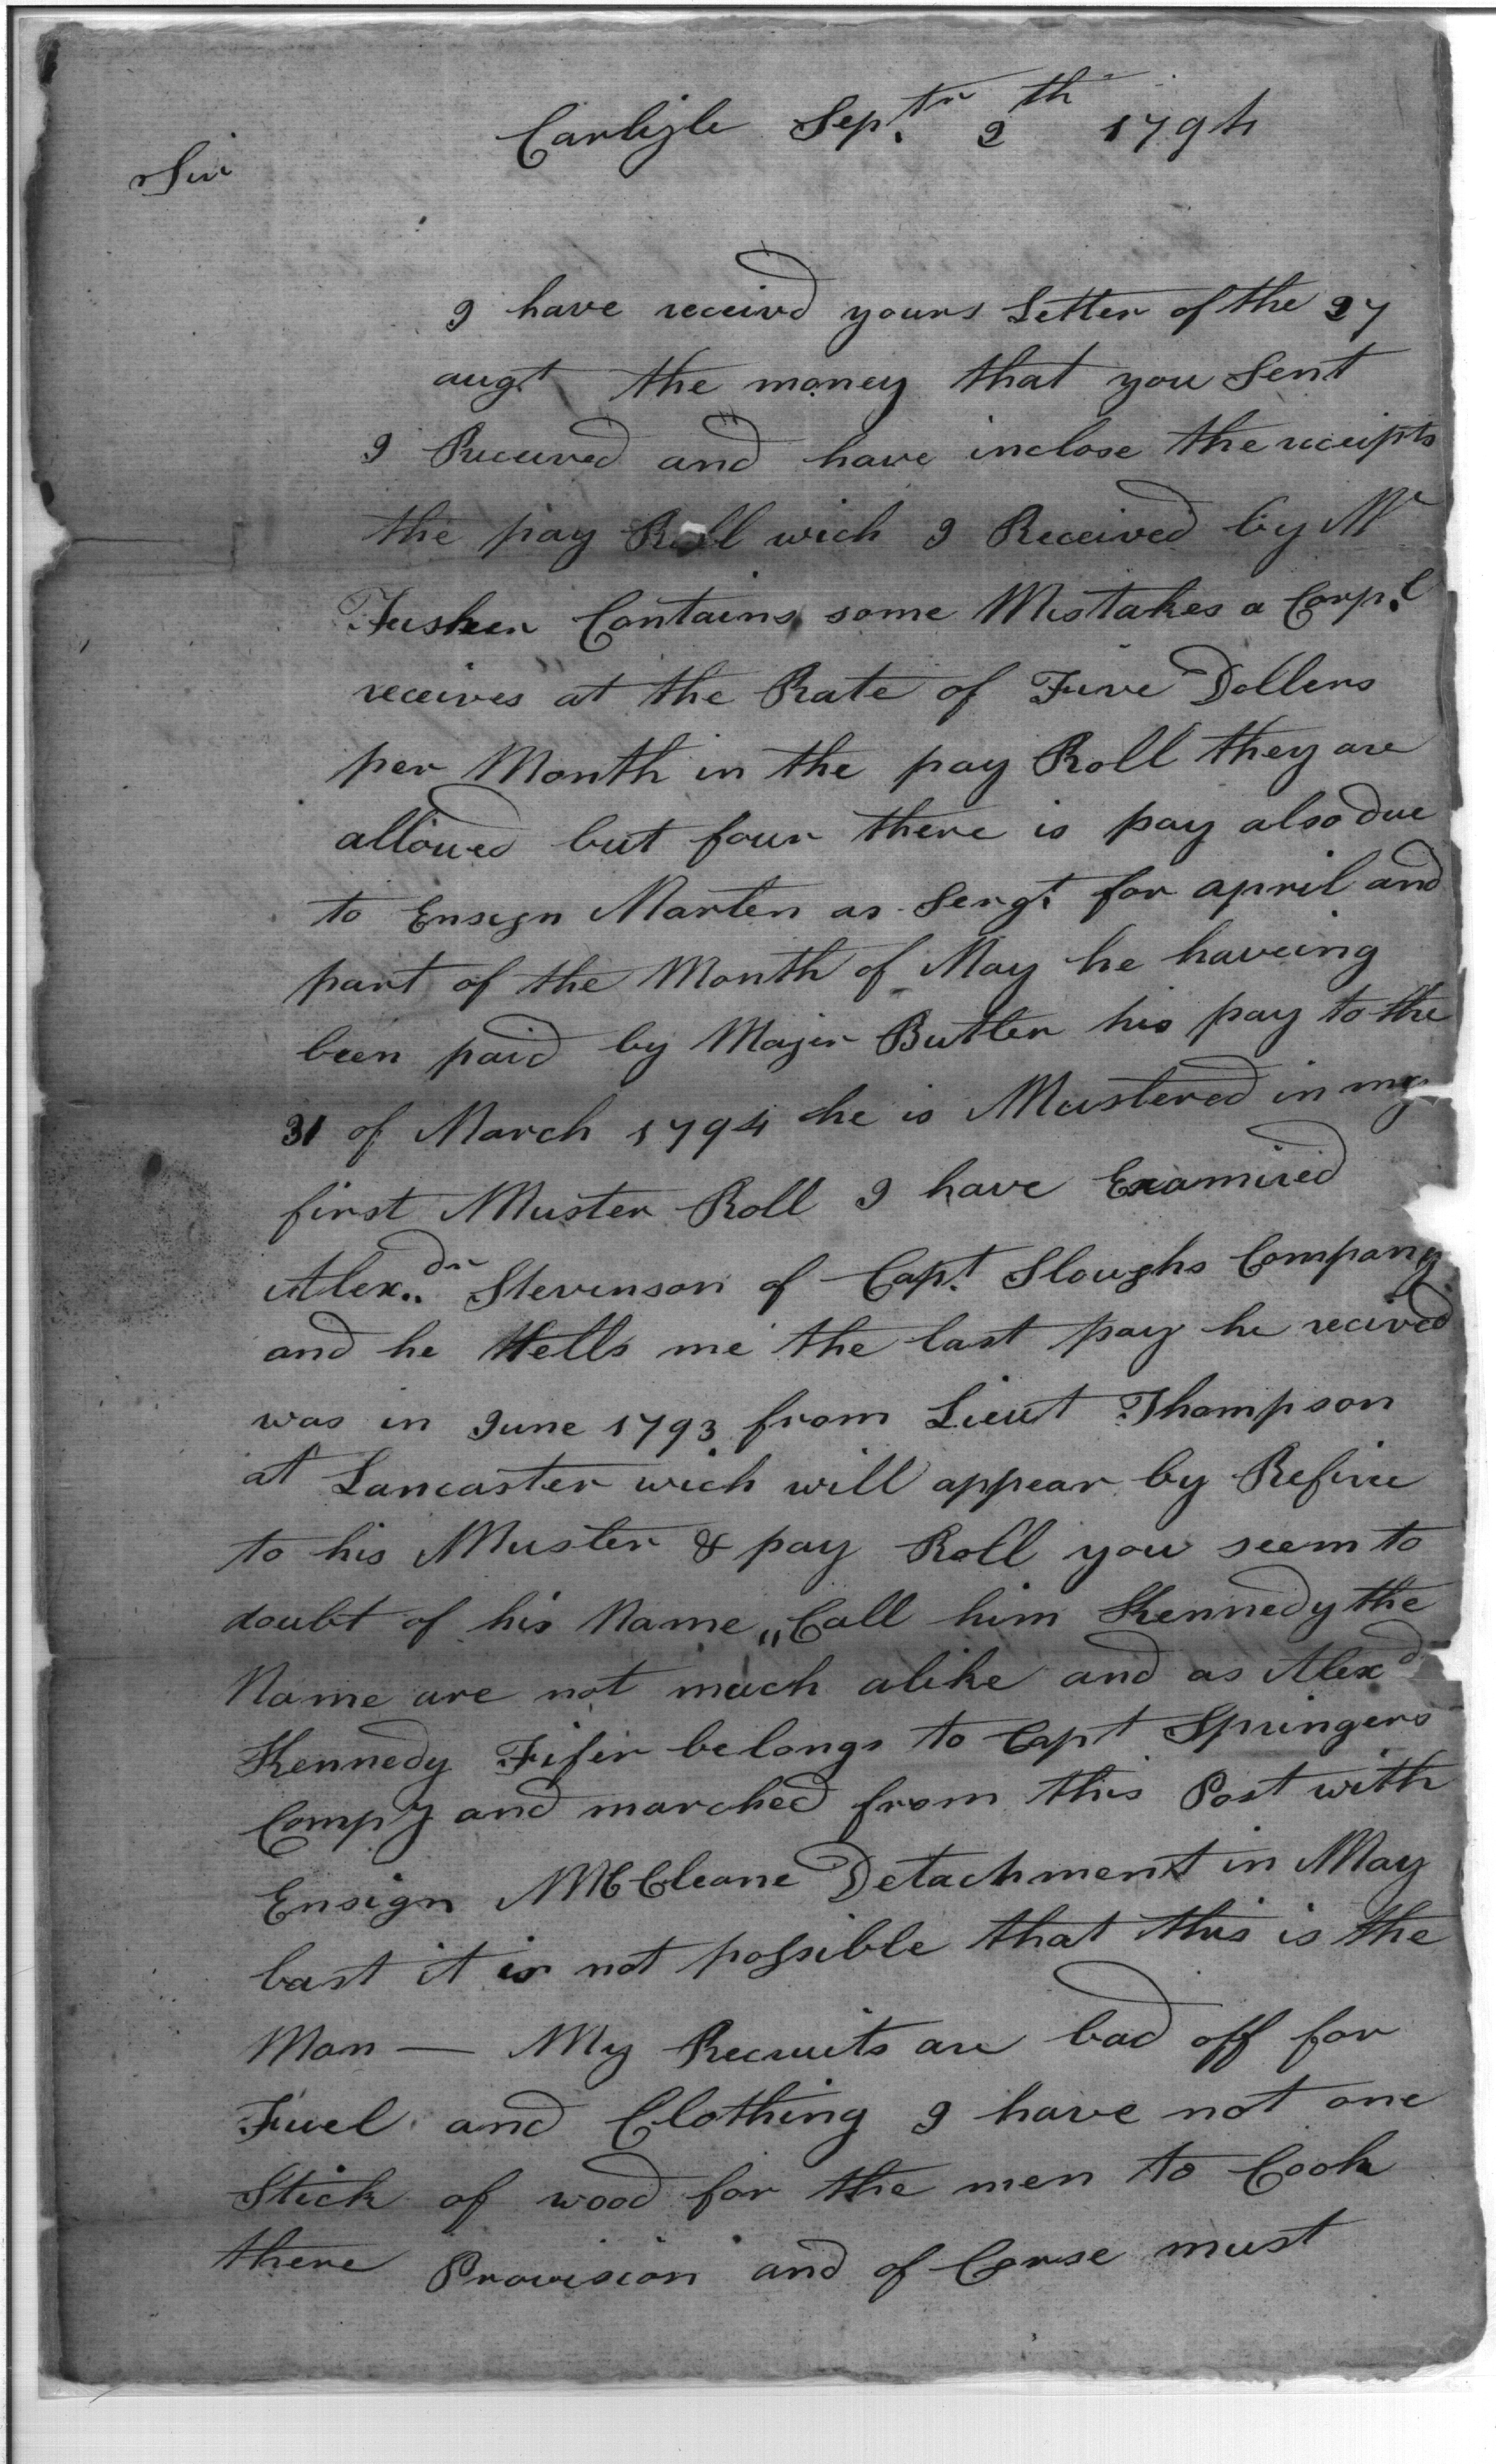 Carlizle Septr. 2th 1794
Sir
I have receivd yours Letter of the 27
augt the money that you Sent
I Received and have inclose the receipts
the pay Roll wich I Received by Mr
Contains some Mistakes a Corpl.
receives at the Rate of Five Dollers
per Month in the pay Roll they are
allowed but four there is pay also due
to Ensign Marten as Sergt. for april and
part of the Month of May he haveing
been paid by Majer Butler his pay to the
31 of March 1794 he is Mustered in my
first Muster Roll I have Examined
Alexdr.. Stevenson of Capt. Sloughs Company
and he tells me the last pay he recived
was in June 1793 from Lieut Thompson
at Lancaster wich will appear by
to his Muster & pay Roll you seem to
doubt of his Name „ Call him Kennedy the
Name are not much alike and as Alexd
Kennedy Fifer belongs to Capt Springers
Compy and marched from this Post with
Ensign McCleane Detachment in May
last it is not possible that this is the
Man — My Recruits are bad off for
Fuel and Clothing I have not one
Stick of wood for the men to Cook
there Provision and of Corse must